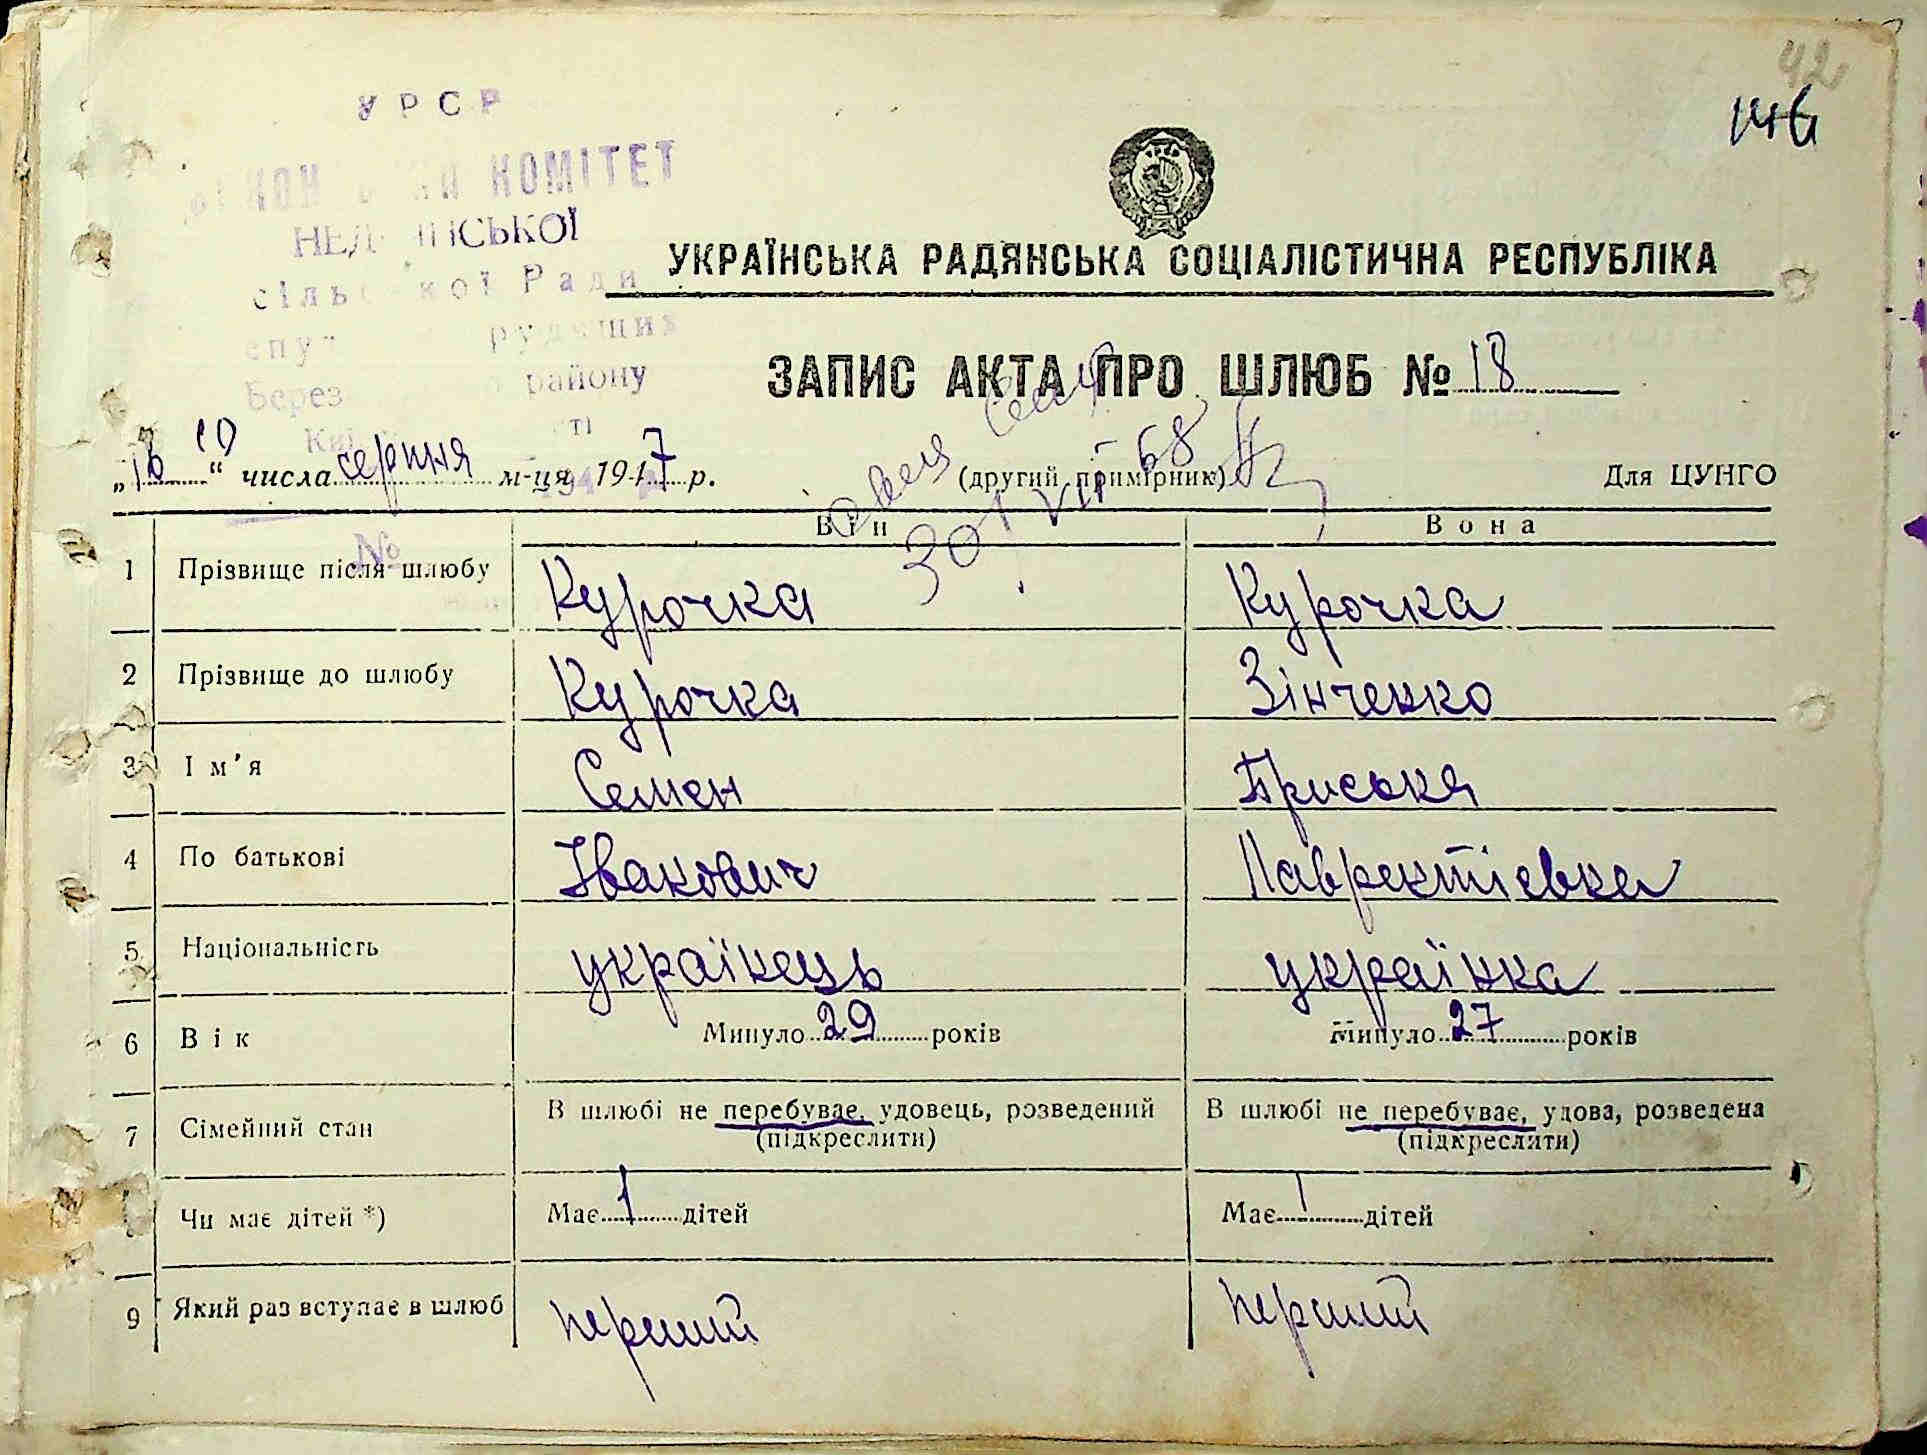 42
146
УРСР
КОМІТЕТ
сільської Ради
району
УКРАЇНСЬКА РАДЯНСЬКА СОЦІАЛІСТИЧНА РЕСПУБЛІКА
ЗАПИС АКТА ПРО ШЛЮБ № 18
„16“ числа серпня м-ця 1947 р. (другий примірник) Для ЦУНГО
30 VII 68
№
Він Вона
1 Прізвище після шлюбу Курочка Курочка
2 Прізвище до шлюбу Курочка Зінченко
3 Ім'я Семен Приська
4 По батькові Іванович Лаврентіевна
5 Національність українець українка
6 Вік Минуло 29 років Минуло 27 років
7 Сімейний стан В шлюбі не перебуває, удовець, розведений В шлюбі не перебуває, удова, розведена
(підкреслити) (підкреслити)
Чи має дітей *) Має 1 дітей Має 1 дітей
9 Який раз вступає в шлюб перший перший